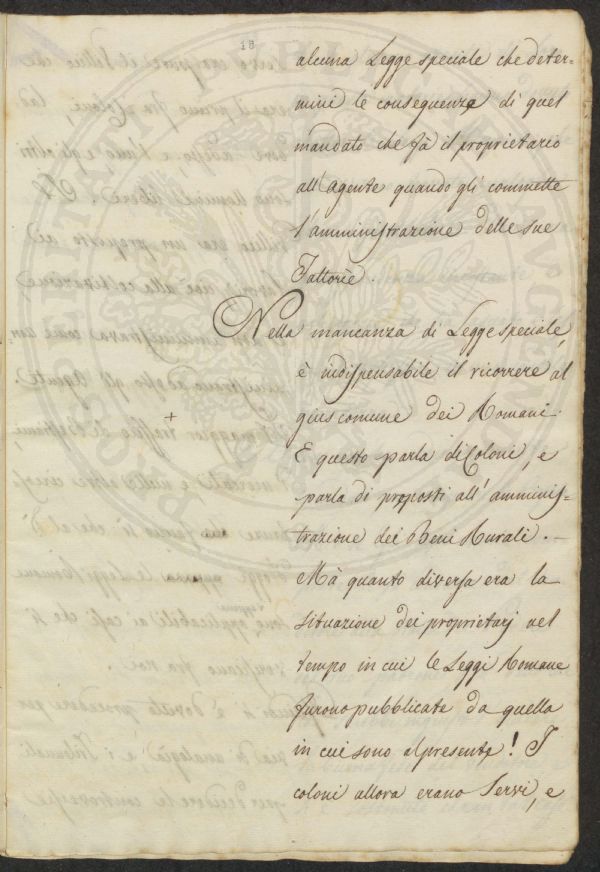 18
alcuna Legge speciale che deter-
mini le conseguenze di quel
mandato che fà il proprietario
all'agente quando gli commette
l'amministrazione delle sue
Fattorìe.
Nella mancanza di Legge speciale,
è indispensabile il ricorrere al
gius comune dei Romani.
E questo parla di Coloni, e
+
parla di preposti all'amminis-
trazione dei Beni Rurali. —
Mà quanto diversa era la
situazione dei proprietarj nel
tempo in cui le Leggi Romane
furono pubblicate da quella
in cui sono al presente! I
coloni allora erano Servi, e